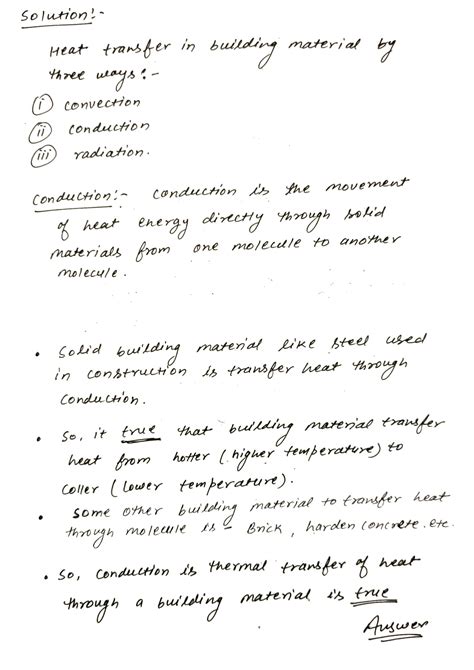 Solution:-
Heat transfer in building material by
three ways:-
(i) convection
(ii) conduction
(iii) radiation.
Conduction:- Conduction is the movement
of heat energy directly through solid
materials from one molecule to another
molecule.
• Solid building material like steel used
in construction is transfer heat through
conduction.
• So, it true that building material transfer
heat from hotter (higher temperature) to
coller (lower temperature).
• Some other building material to transfer heat
through molecule is - Brick, harden concrete. etc.
• So, conduction is thermal transfer of heat
through a building material is true
Answer